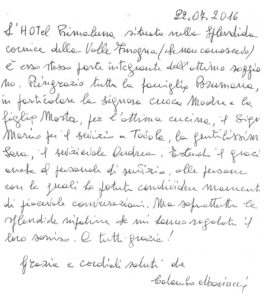 22.07.2016
L'HOTel Primaluna, situato nella splendida
cornice della Valle Imagna (che non conoscevo)
È esso stesso parte integrante dell'ottimo soggior
no. Ringrazio tutta la famiglia
in particolare la signora cuoca Madre e la
figlia Marta, per l'ottima cucina, il Sign
Mario per il servizio a Tavola, la gentilissima
Sara, il servizievole Andrea. Estendo il grazie
anche al personale di servizio, alle persone
con le quali ho potuto condividere momenti
di piacevole conversazione. Ma soprattutto le
splendide nipotine che mi hanno regalato il
loro sorriso. A tutti grazie!
Grazie e cordiali saluti da
Colombo